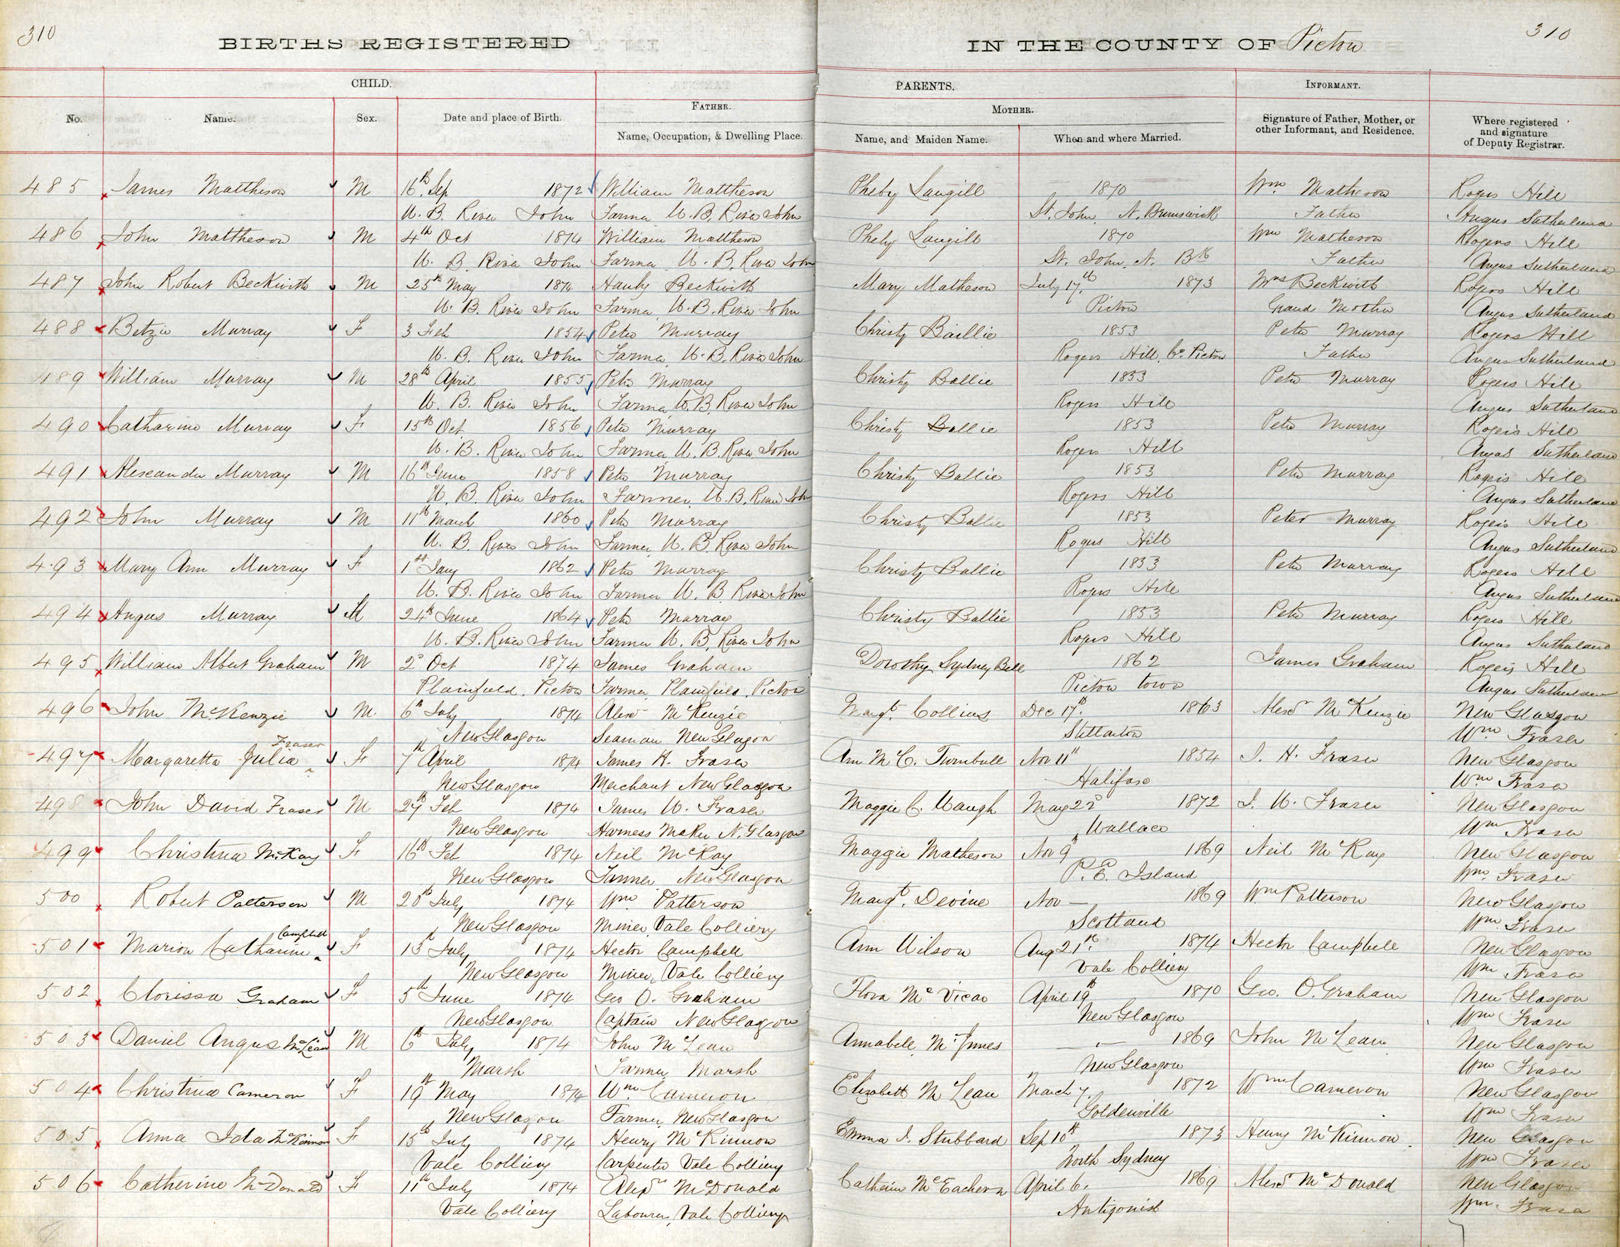 310
BIRTHS REGISTERED
IN THE COUNTY OF Pictou
310
CHILD.
PARENTS.
INFORMANT.
No.
Name.
Sex.
Date and place of Birth.
FATHER.
Name, Occupation, & Dwelling Place.
MOTHER.
Name, and Maiden Name.
When and where Married.
Signature of Father, Mother, or other Informant, and Residence.
Where registered and signature of Deputy Registrar.
485 James Mattheson M 16th Sep 1872 William Mattheson Pheby Langill 1870 Wm Matheson Rogers Hill
W. B. River John Farmer W. B. River John St. John, N. Brunswick Father Angus Sutherland
486 John Mattheson M 4th Oct 1874 William Mattheson Pheby Langill 1870 Wm Matheson Rogers Hill
W. B. River John Farmer W. B. River John St. John, N. Bk Father Angus Sutherland
487 John Robert Beckwith M 25th May 1874 Beckwith Mary Matheson July 17th 1873 Mrs Beckwith Rogers Hill
W. B. River John Farmer W. B. River John Pictou Grand Mother Angus Sutherland
488 Betzie Murray F 3 Feb 1854 Peter Murray Christy Baillie 1853 Peter Murray Rogers Hill
W. B. River John Farmer W. B. River John Rogers Hill, Co Pictou Father Angus Sutherland
489 William Murray M 28th April 1855 Peter Murray Christy Ballie 1853 Peter Murray Rogers Hill
W. B. River John Farmer W. B. River John Rogers Hill Angus Sutherland
490 Catharine Murray F 15th Oct 1856 Peter Murray Christy Ballie 1853 Peter Murray Rogers Hill
W. B. River John Farmer W. B. River John Rogers Hill Angus Sutherland
491 Alexander Murray M 16th June 1858 Peter Murray Christy Ballie 1853 Peter Murray Rogers Hill
W. B. River John Farmer W. B. River John Rogers Hill Angus Sutherland
492 John Murray M 11th March 1860 Peter Murray Christy Ballie 1853 Peter Murray Rogers Hill
W. B. River John Farmer W. B. River John Rogers Hill Angus Sutherland
493 Mary Ann Murray F 1st Jany 1862 Peter Murray Christy Ballie 1853 Peter Murray Rogers Hill
W. B. River John Farmer W. B. River John Rogers Hill Angus Sutherland
494 Angus Murray M 24th June 1864 Peter Murray Christy Ballie 1853 Peter Murray Rogers Hill
W. B. River John Farmer W. B. River John Rogers Hill Angus Sutherland
495 William Albert Graham M 2d Oct 1874 James Graham Dorothy Sydney Bell 1862 James Graham Rogers Hill
Plainfield, Pictou Farmer Plainfield, Pictou Pictou town Angus Sutherland
496 John McKenzie M 6th July 1874 Alexr McKenzie Margt. Collins Dec 17th 1863 Alexr McKenzie New Glasgow
New Glasgow Seaman New Glasgow Stellarton Wm Fraser
497 Margaretta Julia Fraser F 7th April 1874 James H. Fraser Ann McC. Turnbull Nov 11th 1854 J. H. Fraser New Glasgow
New Glasgow Merchant New Glasgow Halifax Wm Fraser
498 John David Fraser M 27th Feb 1874 James W. Fraser Maggie C. Waugh May 22d 1872 J. W. Fraser New Glasgow
New Glasgow Harness Maker N. Glasgow Wallace Wm Fraser
499 Christina McKay F 16th Feb 1874 Neil McKay Maggie Matheson Nov 9th 1869 Neil McKay New Glasgow
New Glasgow Tanner New Glasgow P. E. Island Wm. Fraser
500 Robert Patterson M 20th July 1874 Wm Patterson Margt. Devine Nov — 1869 Wm Patterson New Glasgow
New Glasgow Miner, Vale Colliery Scotland Wm. Fraser
501 Marion Catharine Campbell F 13th July 1874 Hector Campbell Ann Wilson Aug 21st 1874 Hector Campbell New Glasgow
New Glasgow Miner, Vale Colliery Vale Colliery Wm Fraser
502 Clorissa Graham F 5th June 1874 Geo O. Graham Flora McVicar April 19th 1870 Geo. O. Graham New Glasgow
New Glasgow Captain New Glasgow New Glasgow Wm Fraser
503 Daniel Angus McLean M 6th July 1874 John McLean Annabell McInnes — 1869 John McLean New Glasgow
Marsh Farmer Marsh New Glasgow Wm Fraser
504 Christina Cameron F 19th May 1874 Wm Cameron Elizabeth McLean March 7 1872 Wm Cameron New Glasgow
New Glasgow Farmer, New Glasgow Goldenville Wm Fraser
505 Anna Ida McKinnon F 15th July 1874 Henry McKinnon Emma J. Stubbard Sep 10th 1873 Henry McKinnon New Glasgow
Vale Colliery Carpenter Vale Colliery North Sydney Wm Fraser
506 Catherine McDonald F 11th July 1874 Alexr McDonald Catharin McEachern April 6. 1869 Alexr McDonald New Glasgow
Vale Colliery Labourer, Vale Colliery Antigonish Wm. Fraser